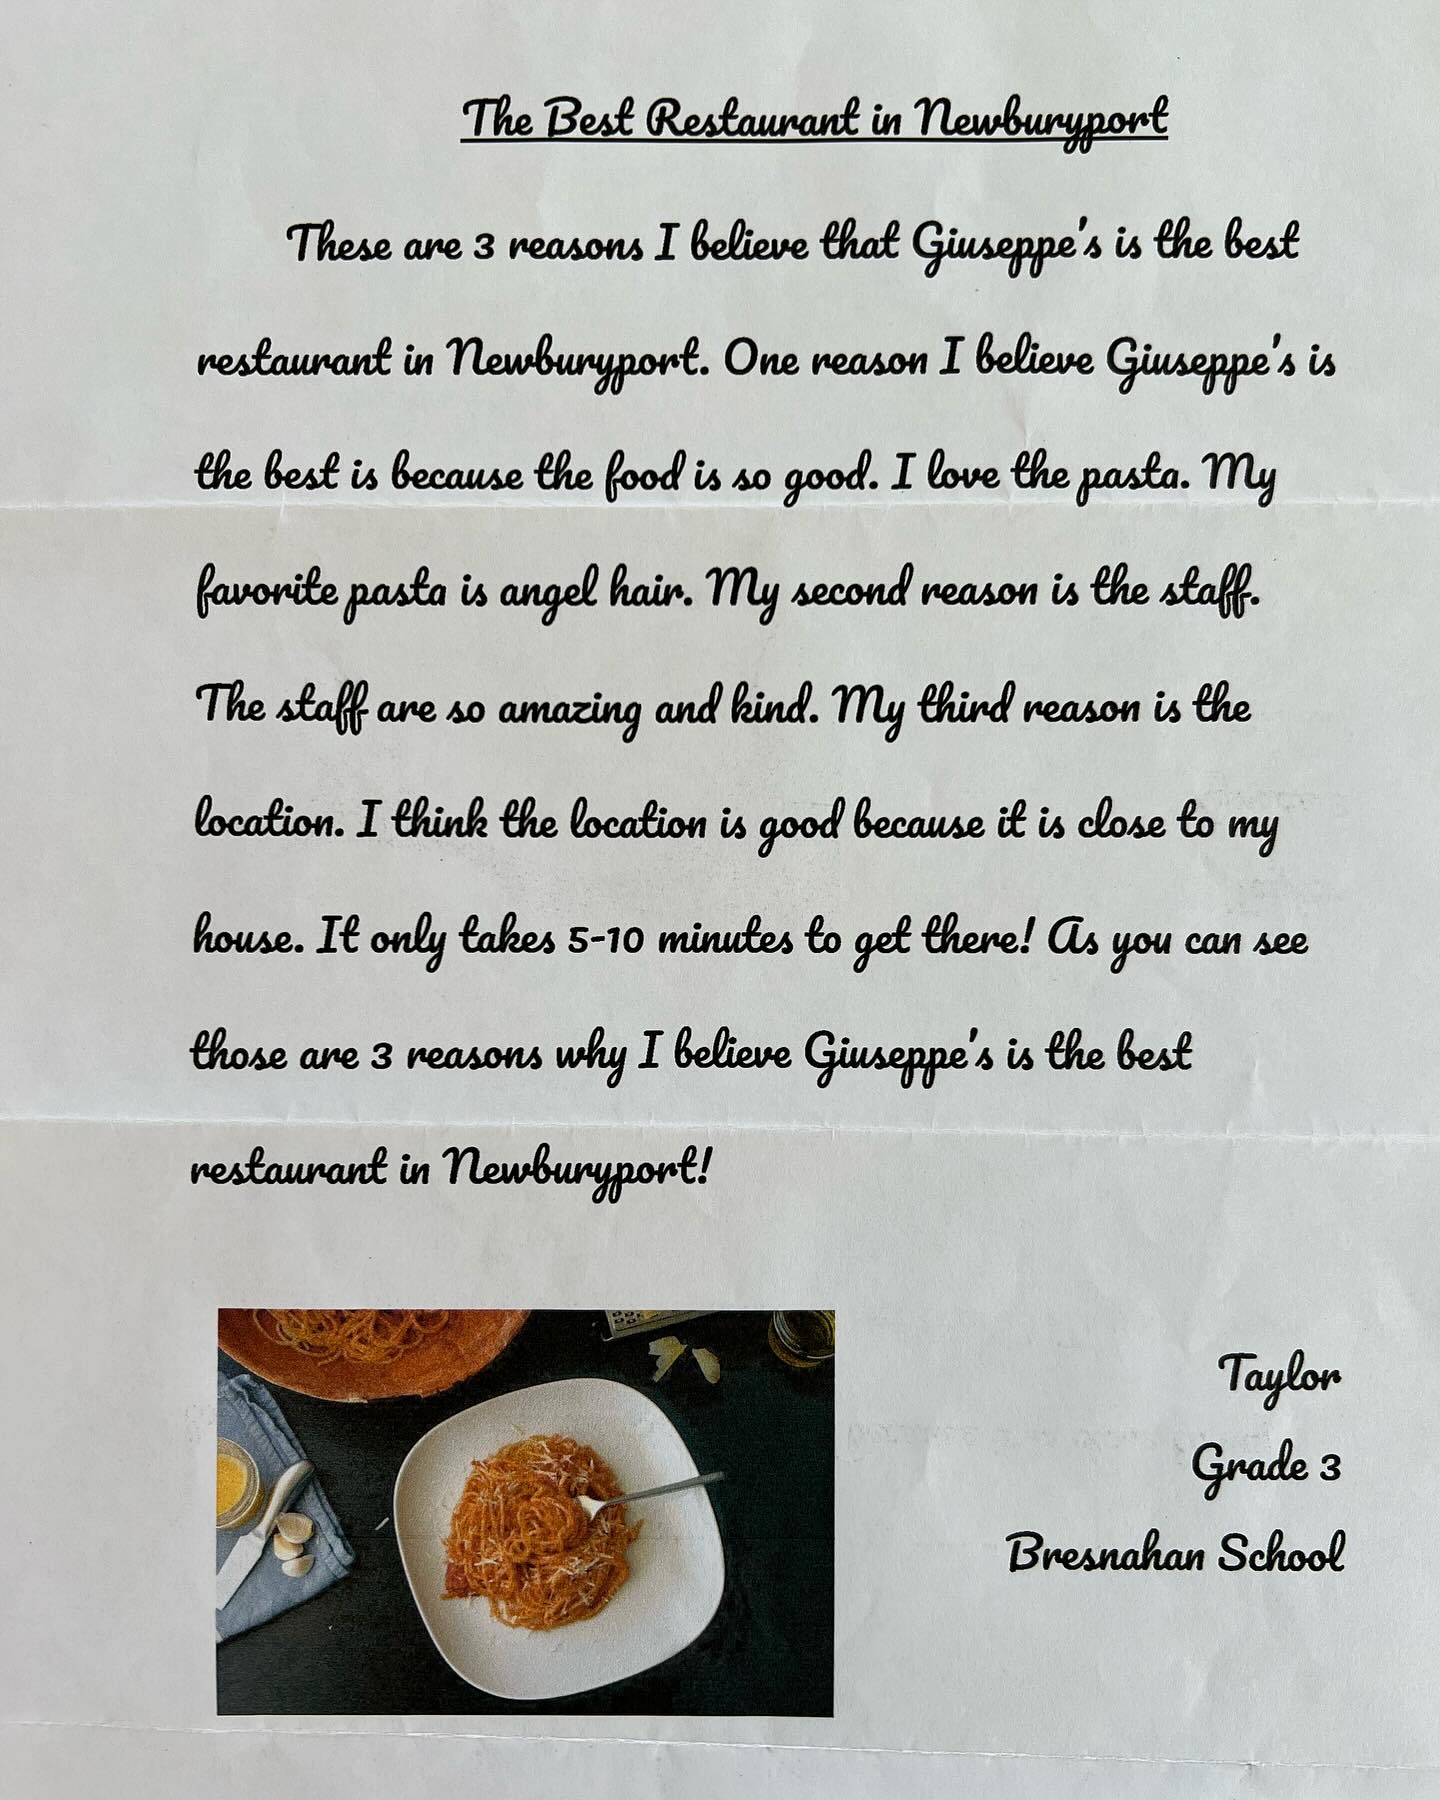 The Best Restaurant in Newburyport
These are 3 reasons I believe that Giuseppe's is the best
restaurant in Newburyport. One reason I believe Giuseppe's is
the best is because the food is so good. I love the pasta. My
favorite pasta is angel hair. My second reason is the staff.
The staff are so amazing and kind. My third reason is the
location. I think the location is good because it is close to my
house. It only takes 5-10 minutes to get there! As you can see
those are 3 reasons why I believe Giuseppe's is the best
restaurant in Newburyport!
Taylor
Grade 3
Bresnahan School